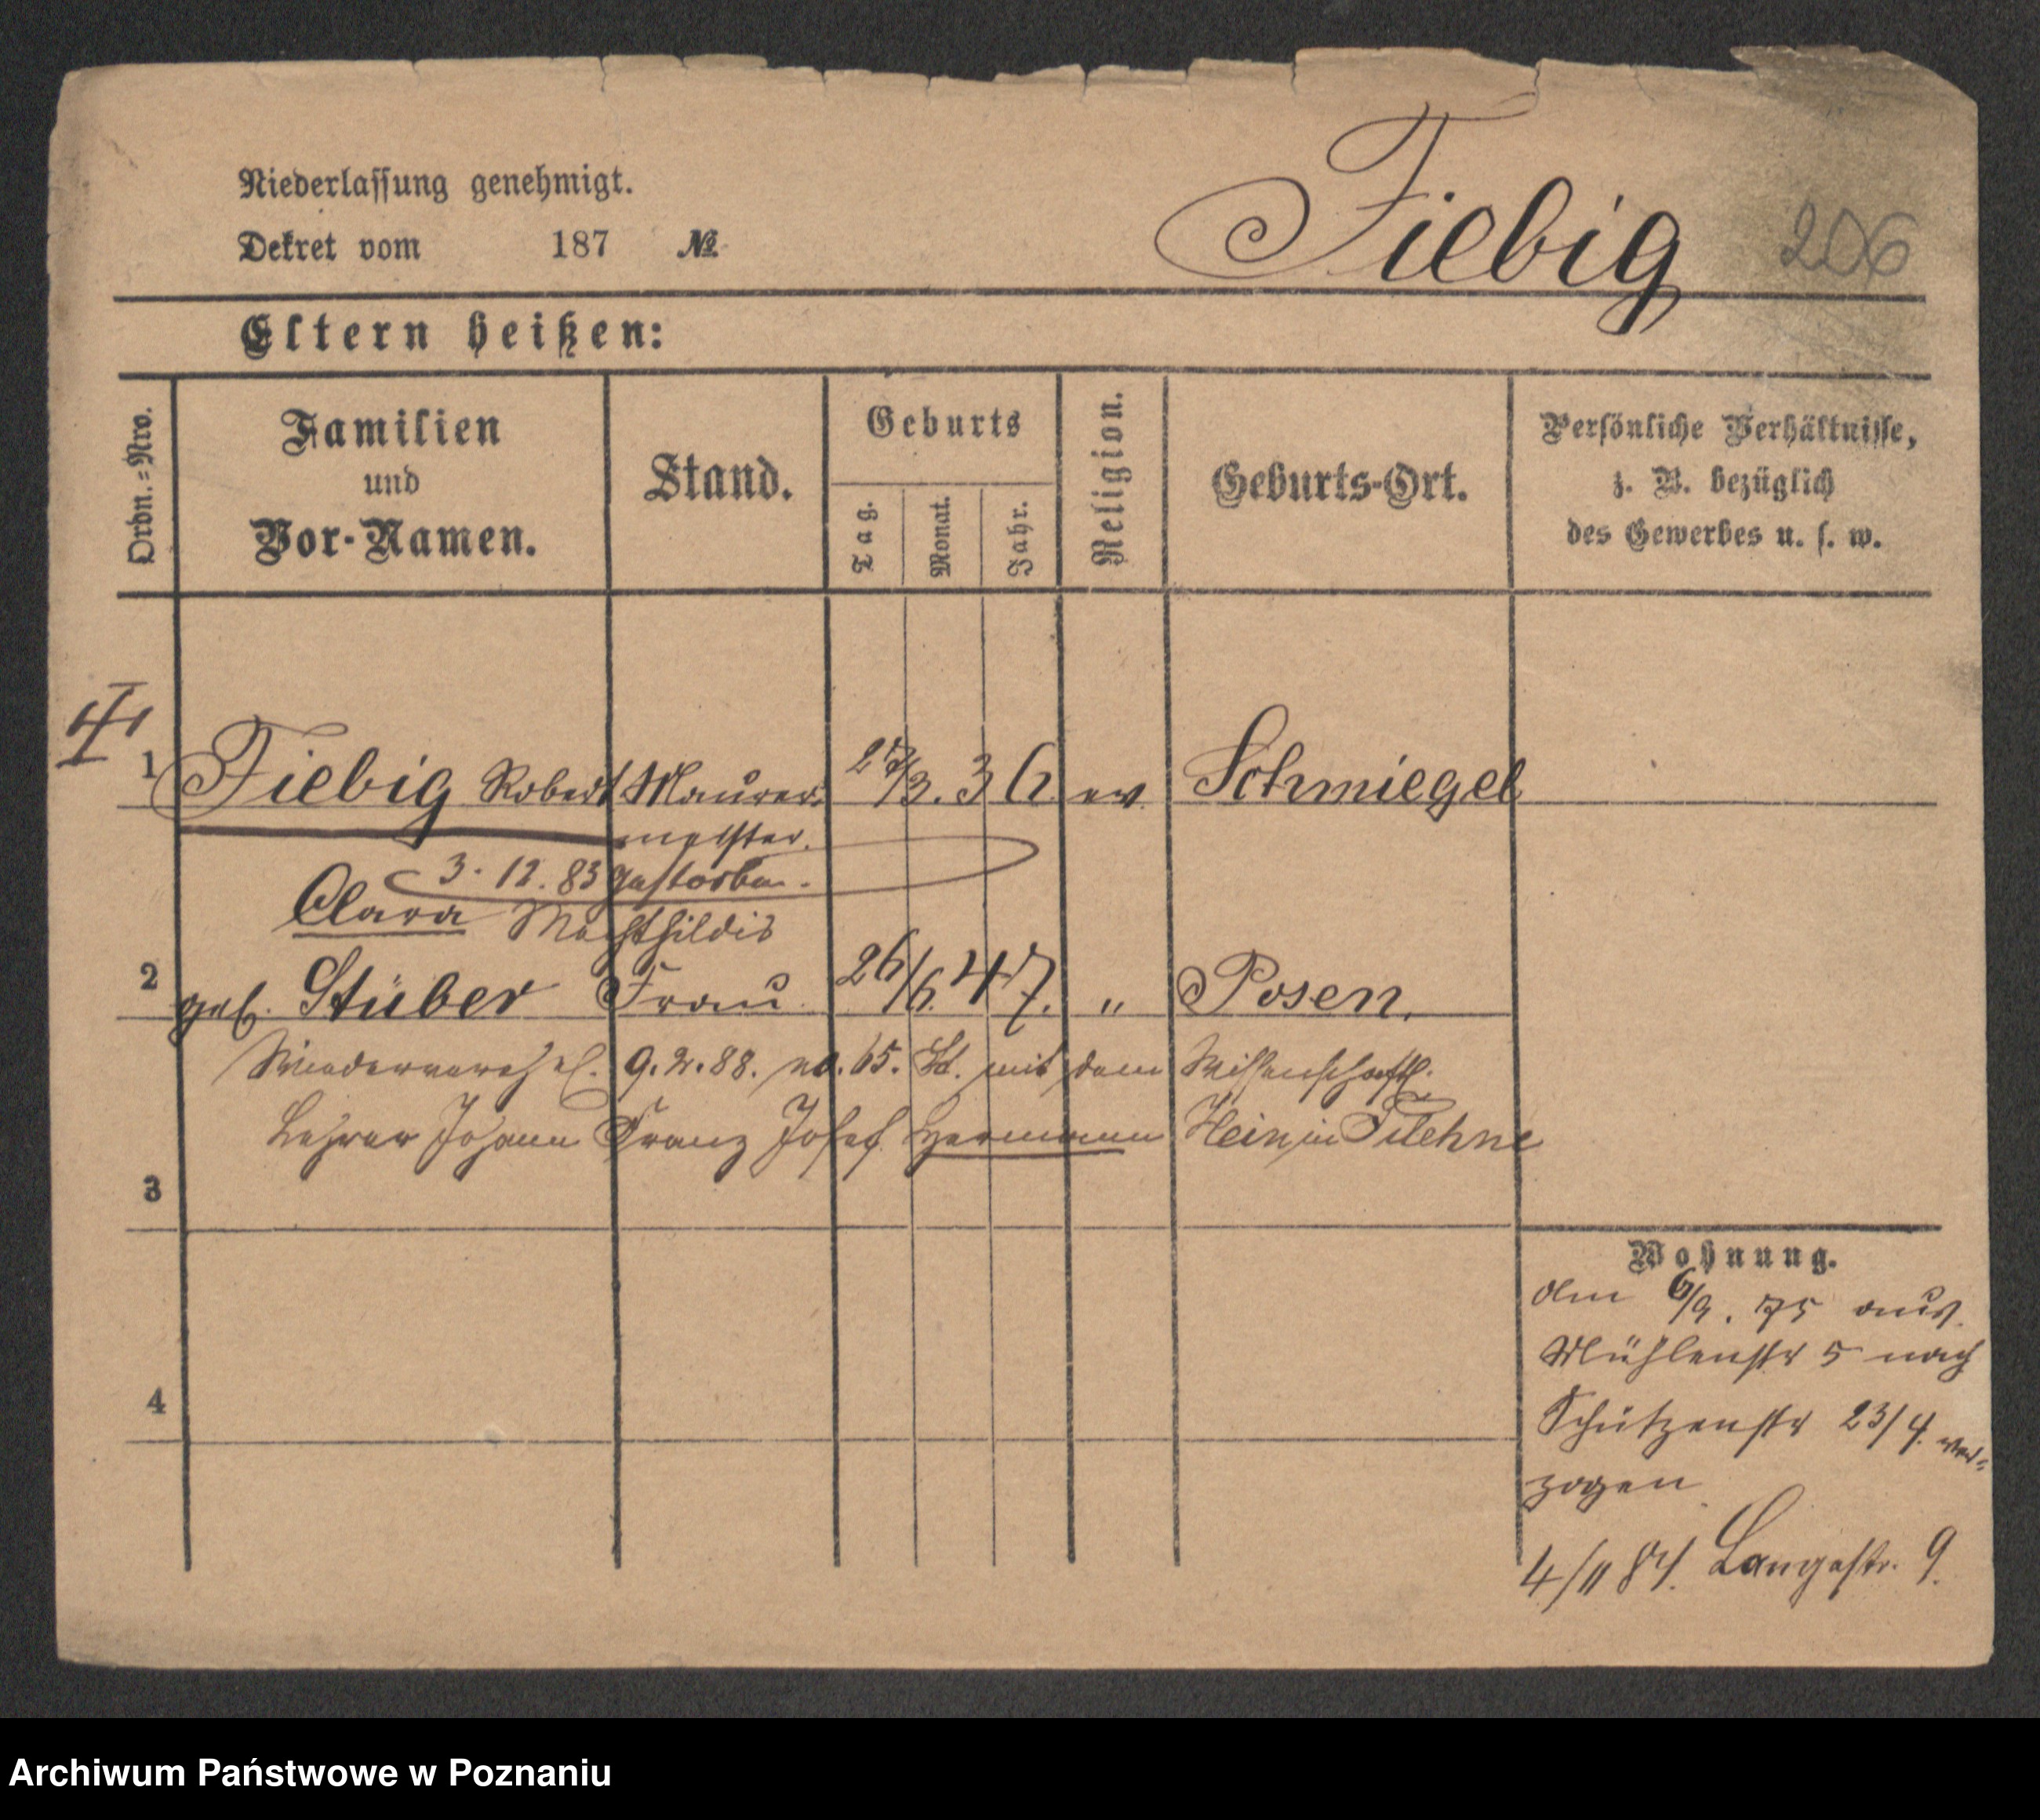 Niederlassung genehmigt.
Dekret vom 187 №
Fiebig 206
Eltern heißen:
Ordn.=Nro.
Familien
und
Vor-Namen.
Stand.
Geburts
Tag.
Monat.
Jahr.
Religion.
Geburts-Ort.
Persönliche Verhältnisse,
z. B. bezüglich
des Gewerbes u. s. w.
1 Fiebig Robert Maurer- /3. 36 ev. Schmiegel
meister.
3. 12. 83 gestorben.
Clara Mechthildis
2 geb. Stüber Frau 26/6. 47. " Posen.
Wiederverehel. 9. 2. 88. no. 65. St. mit dem Wissenschaftl.
Lehrer Johann Franz Josef Hermann Hein in Filehne
3
4
Wohnung.
Am 6/9. 75 aus
Mühlenstr 5 nach
Schützenstr 23/4. ver=
zogen
4/11 84. Langestr. 9.
Archiwum Państwowe w Poznaniu